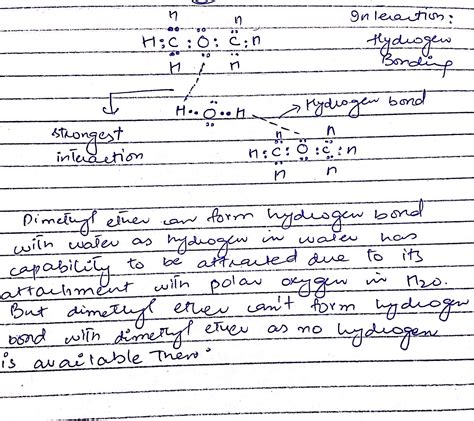 H H Interaction:
H : C : O : C : H Hydrogen
H H Bonding
H •• O •• H → Hydrogen bond
strongest H H
interaction H : C : O : C : H
H H
Dimethyl ether can form hydrogen bond
with water as hydrogen in water has
capability to be attracted due to its
attachment with polar oxygen in H2O.
But dimethyl ether can't form hydrogen
bond with dimethyl ether as no hydrogen
is available There.